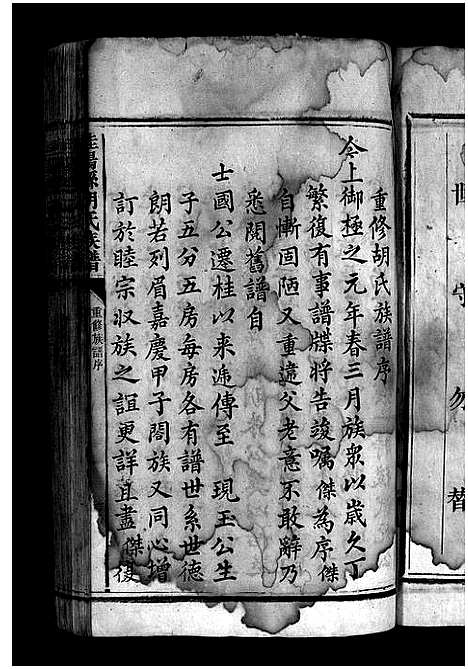 世守勿替
重修胡氏族譜序
今上御極之元年春三月族眾以歲久丁
繁復有事譜牒將告竣囑傑為序傑
自慚固陋又重違父老意不敢辭乃
悉閱舊譜自
士國公遷桂以来遞傳至 現玉公生
子五分五房每房各有譜世系世德
朗若列眉嘉慶甲子閤族又同心增
訂於睦宗収族之誼更詳且盡傑復
胡氏族譜
重修族譜序